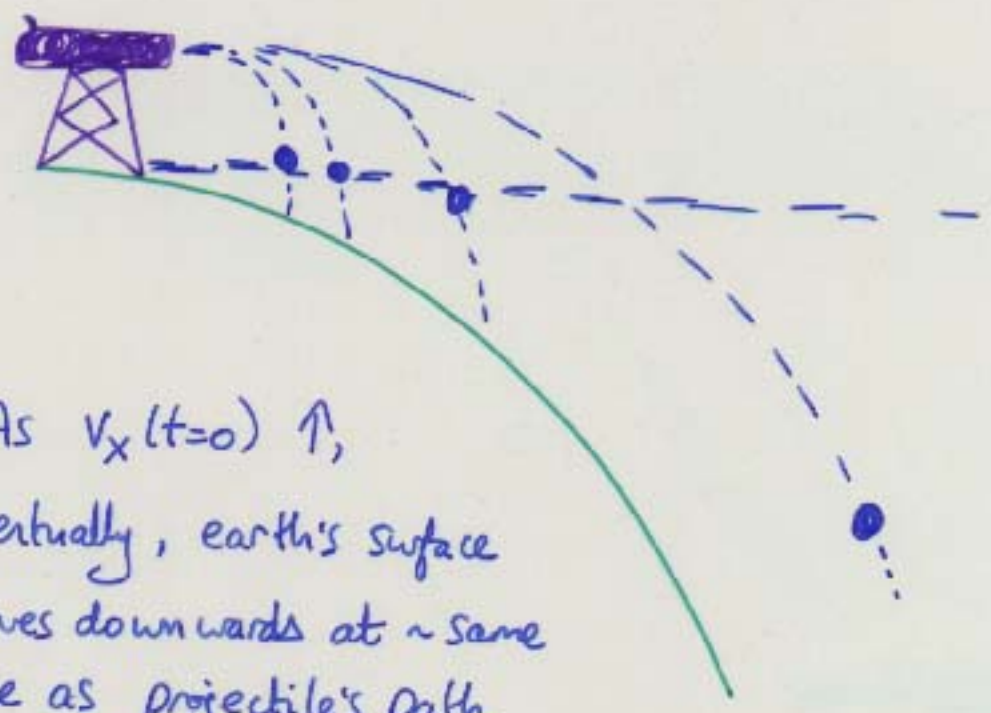 As vₓ(t=0) ↑,
ertually, earth's surface
ves downwards at ~ same
e as projectile's path